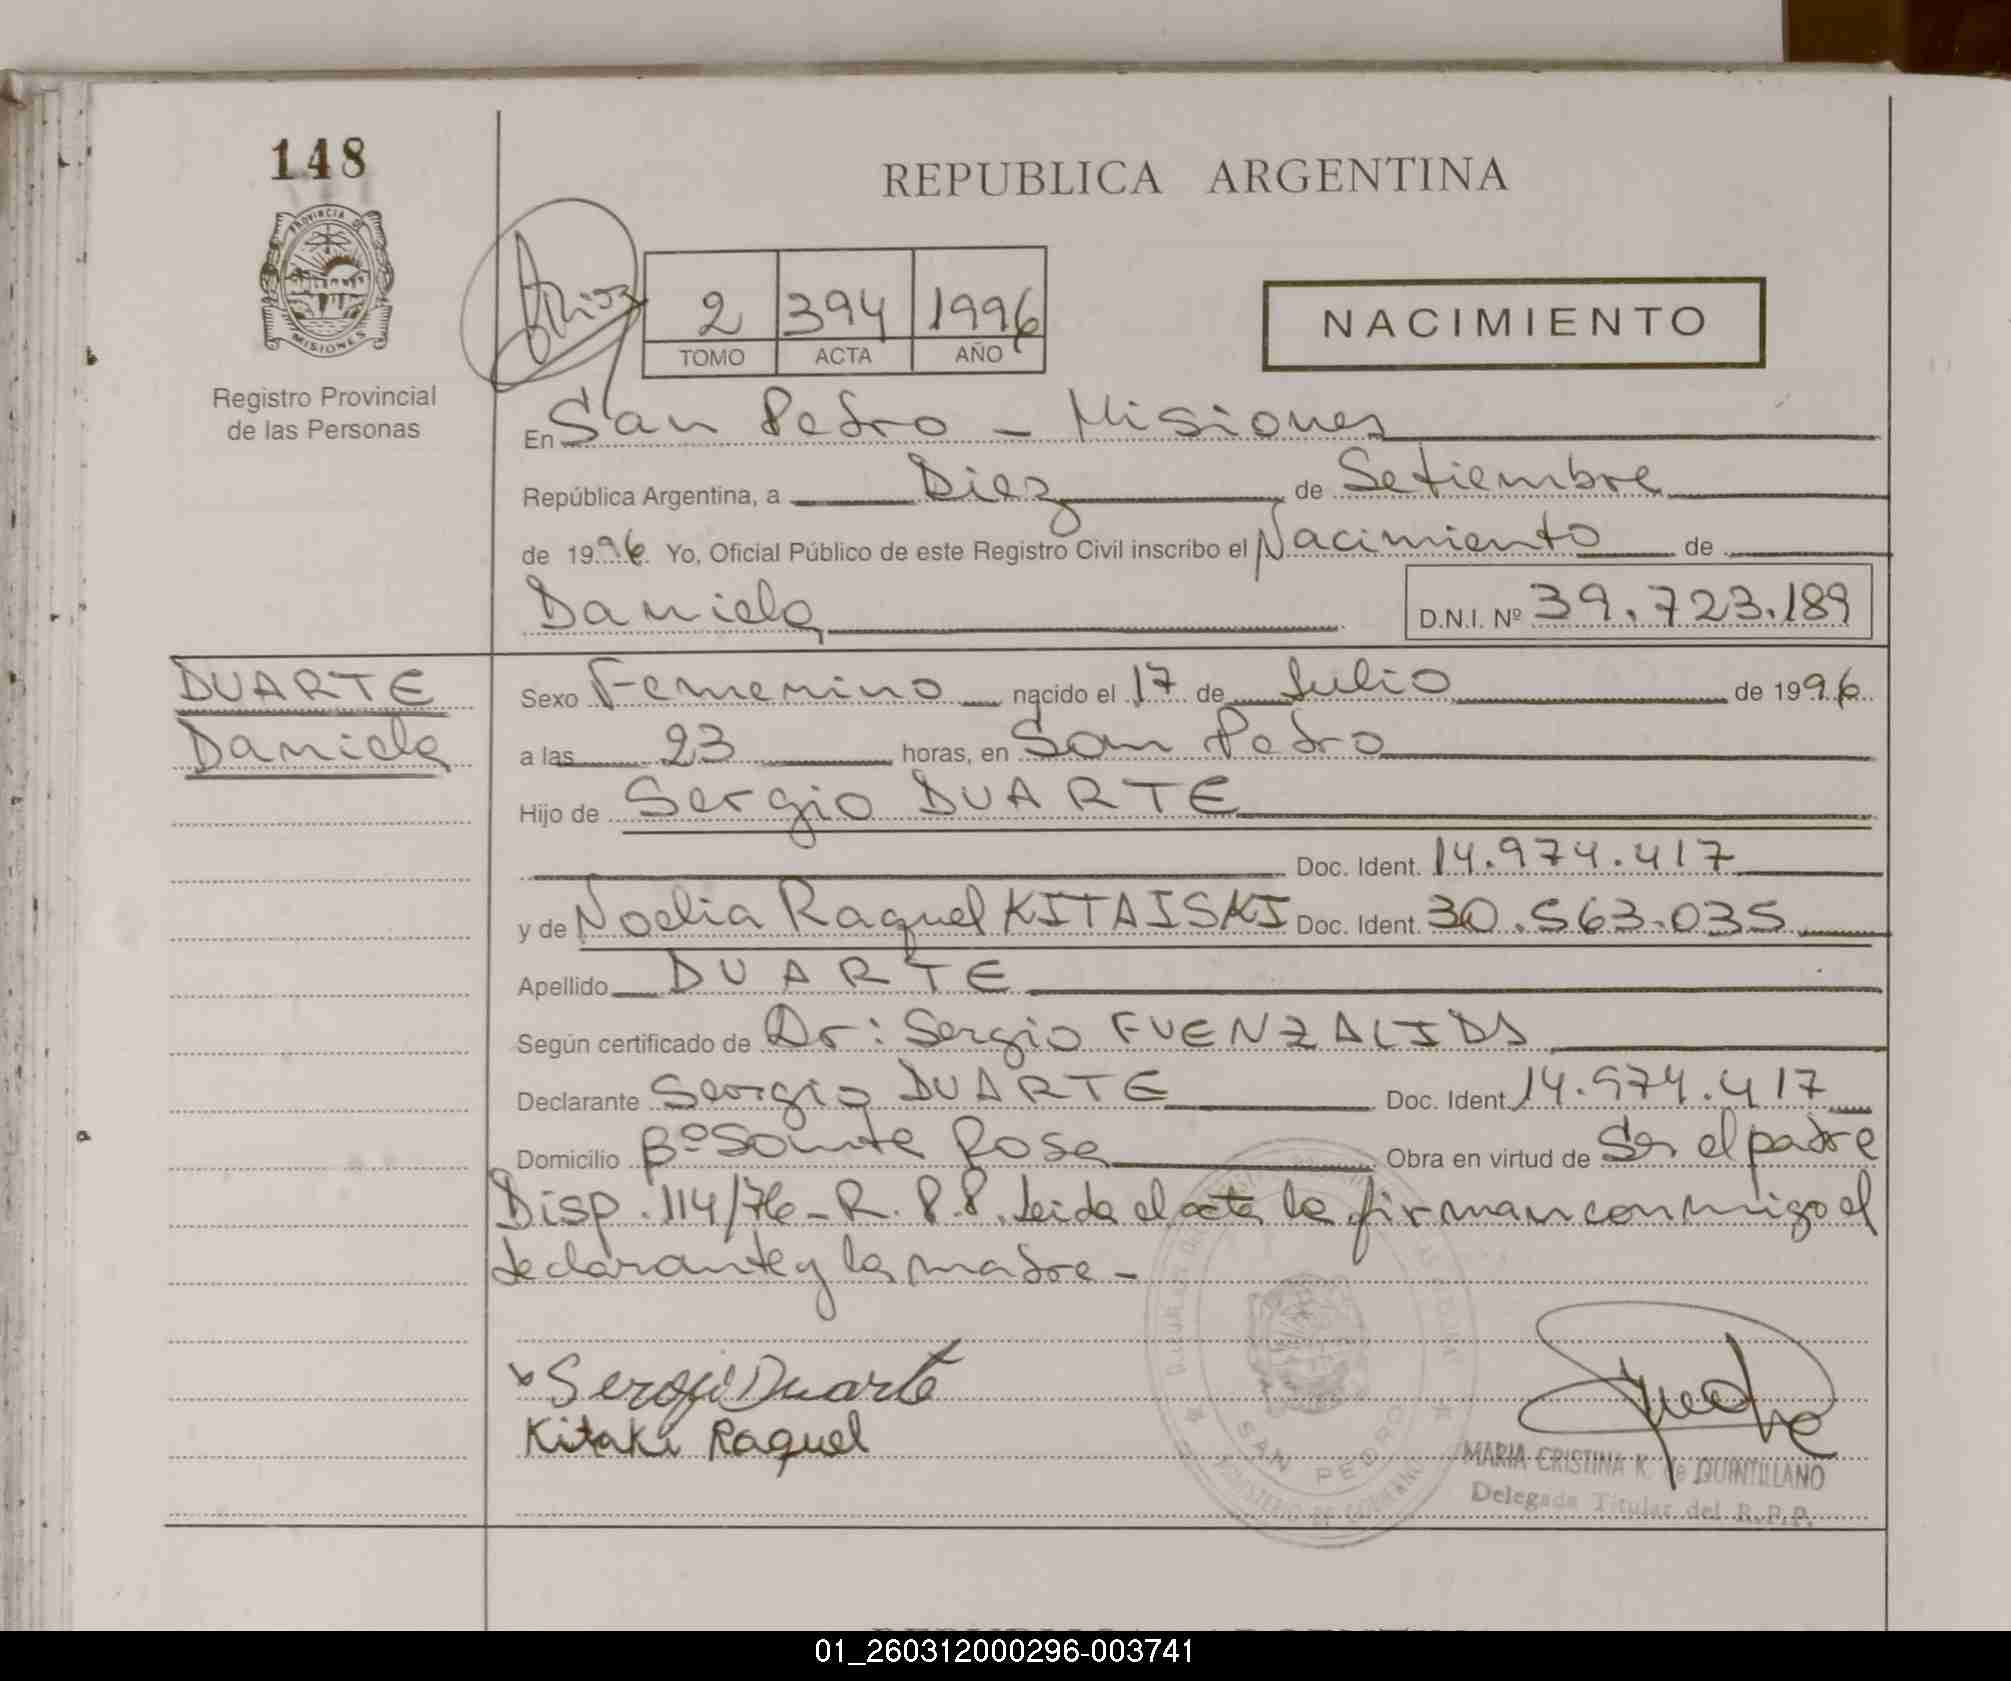 148
REPUBLICA ARGENTINA
PROVINCIA DE
MISIONES
2 394 1996
TOMO ACTA AÑO
NACIMIENTO
Registro Provincial
de las Personas
En San Pedro - Misiones
República Argentina, a Diez de Setiembre
de 1996 Yo, Oficial Público de este Registro Civil inscribo el Nacimiento de
Daniela D.N.I. Nº 39.723.189
DUARTE
Daniela
Sexo Femenino nacido el 17 de Julio de 1996
a las 23 horas, en San Pedro
Hijo de Sergio DUARTE
Doc. Ident. 14.974.417
y de Noelia Raquel KITAISKI Doc. Ident. 30.563.035
Apellido DUARTE
Según certificado de Dr: Sergio FUENZALIDA
Declarante Sergio DUARTE Doc. Ident. 14.974.417
Domicilio Bº Santa Rosa Obra en virtud de Ser el padre
Disp. 114/76 - R.P.P. Leida el acta la firman conmigo el
declarante y la madre -
Sergio Duarte
Kitaki Raquel
SAN PEDRO
MINISTERIO DE GOBIERNO
MARIA CRISTINA K. de QUINTILLANO
Delegada Titular del R.P.P.
01_260312000296-003741